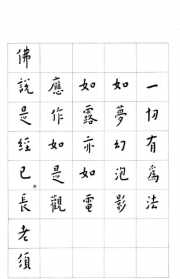 一切有爲法
如夢幻泡影
如露亦如電
應作如是觀
佛說是經已長老須